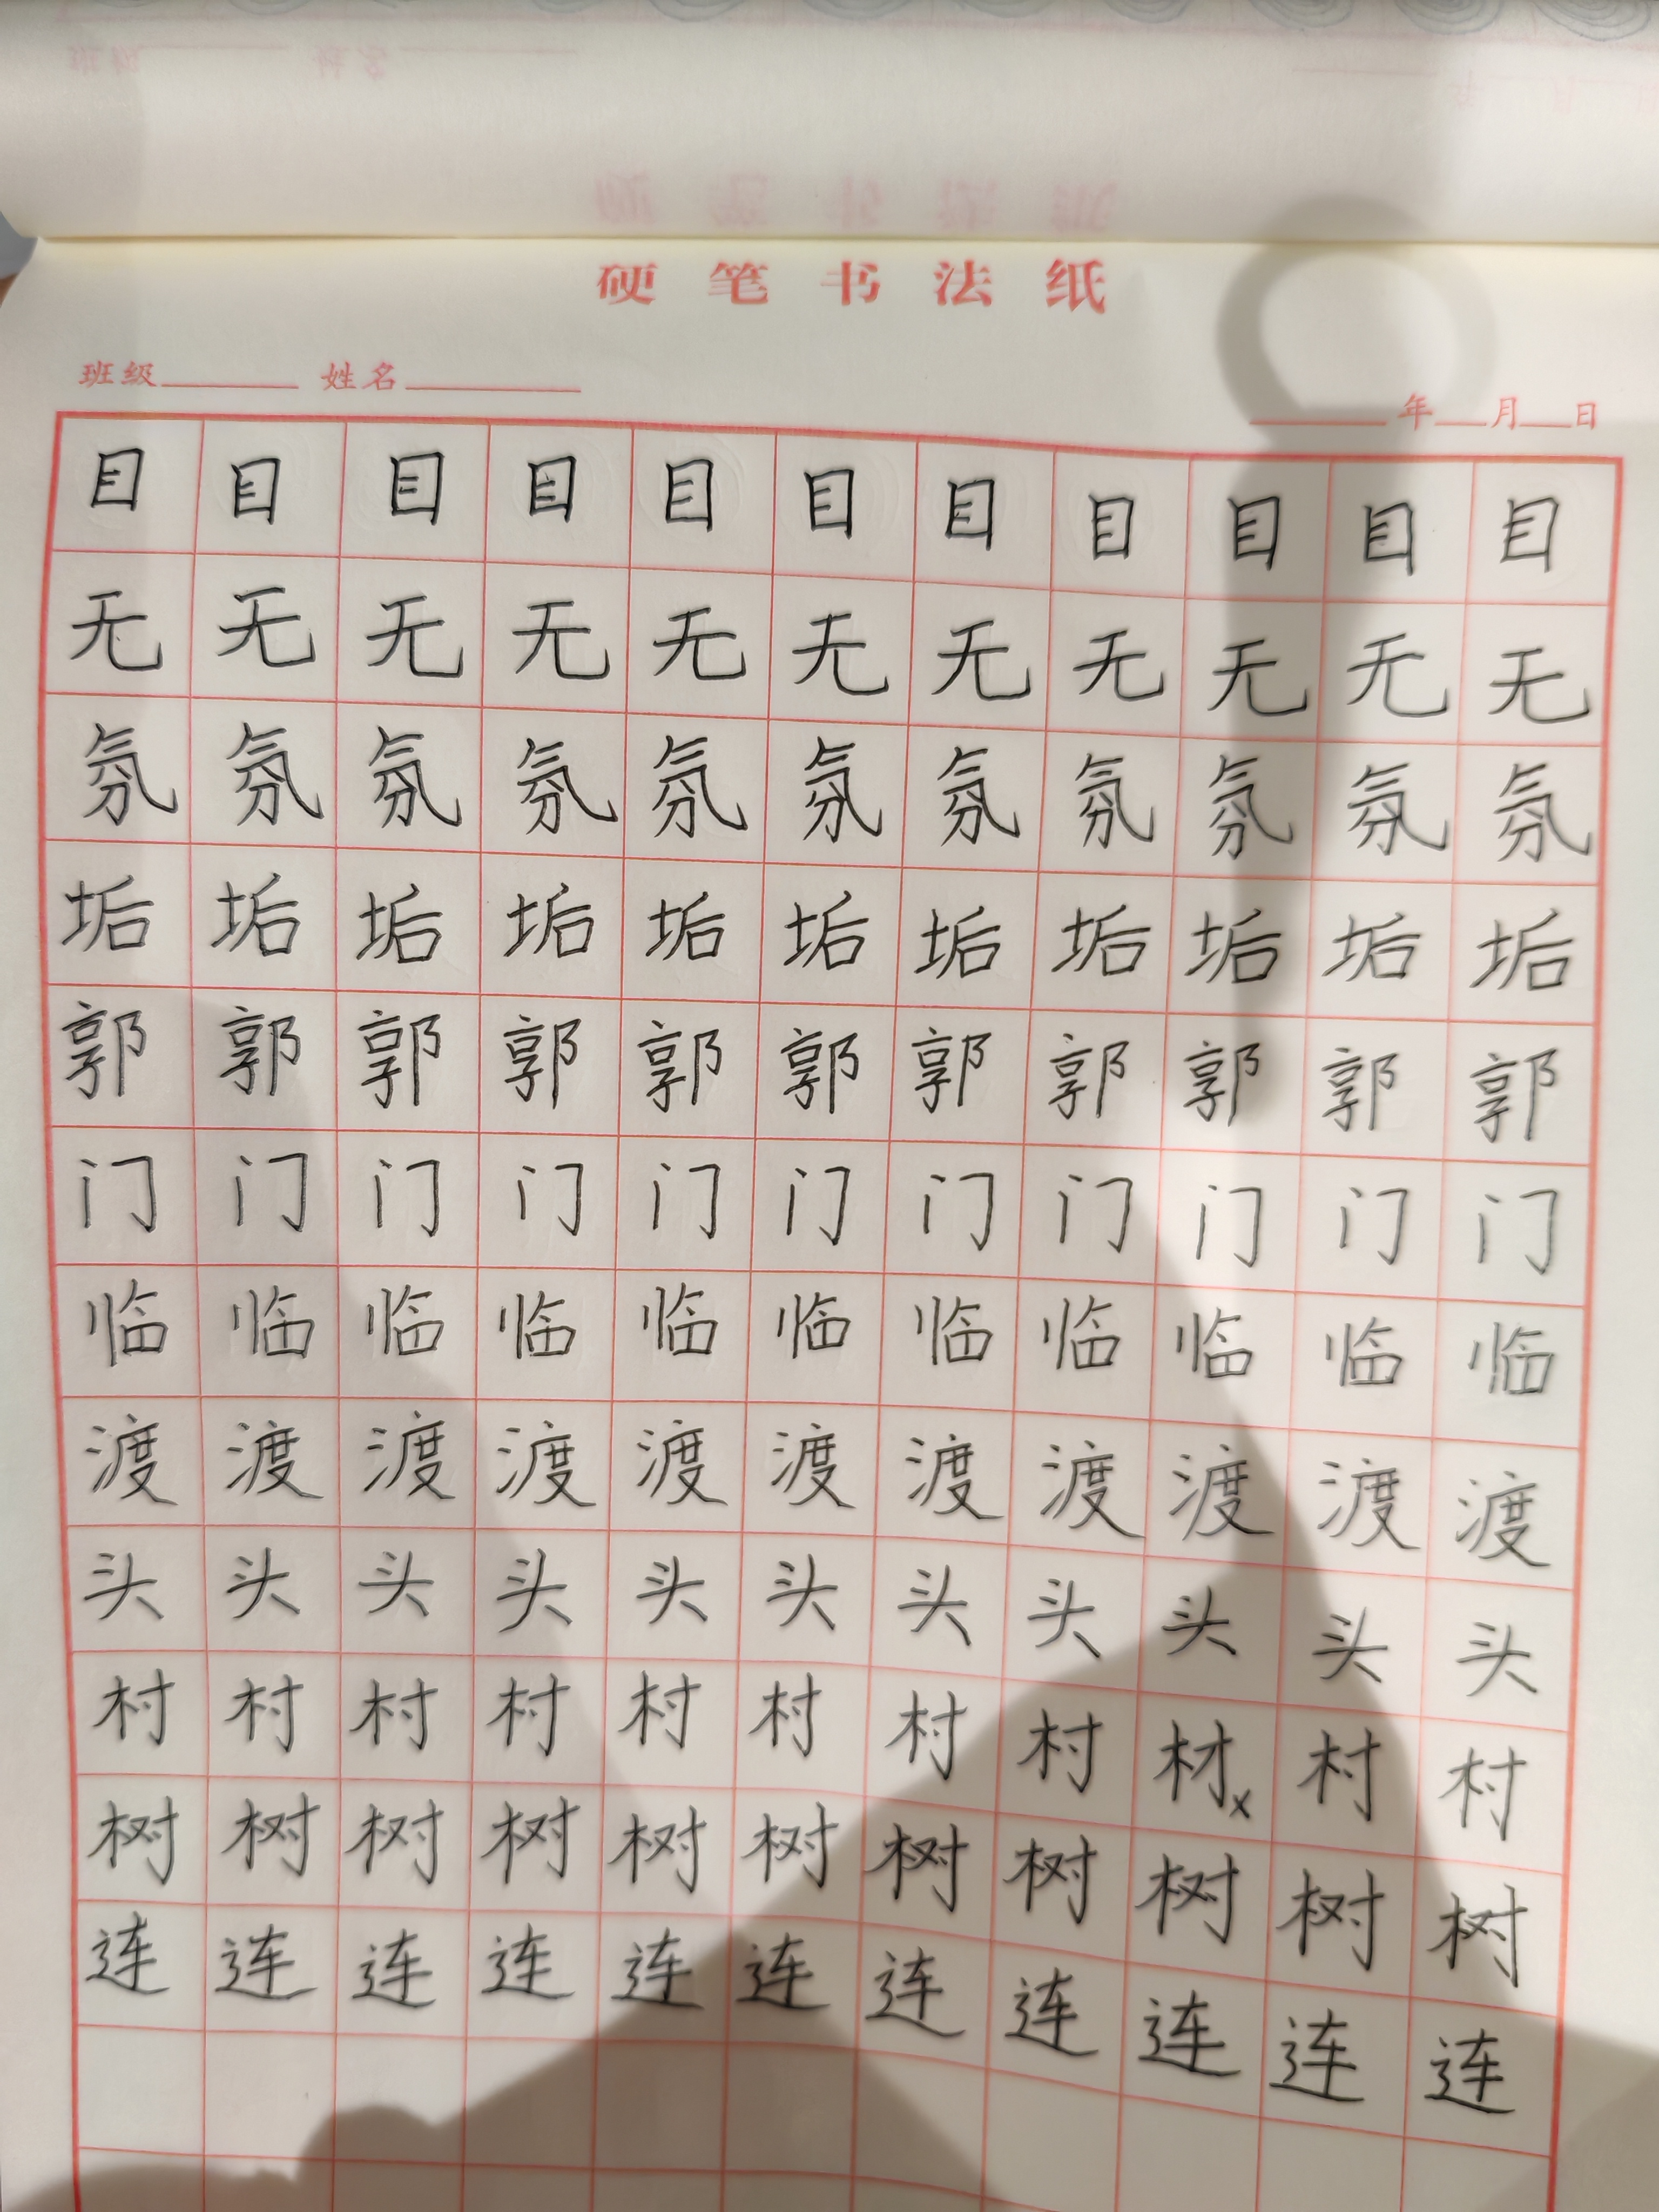 硬笔书法纸
班级 姓名
年 月 日
目目目目目目目目目目目
无无无无无无无无无无无
氛氛氛氛氛氛氛氛氛氛氛
垢垢垢垢垢垢垢垢垢垢垢
郭郭郭郭郭郭郭郭郭郭郭
门门门门门门门门门门门
临临临临临临临临临临临
渡渡渡渡渡渡渡渡渡渡渡
头头头头头头头头头头头
村村村村村村村村材x村村
树树树树树树树树树树树
连连连连连连连连连连连